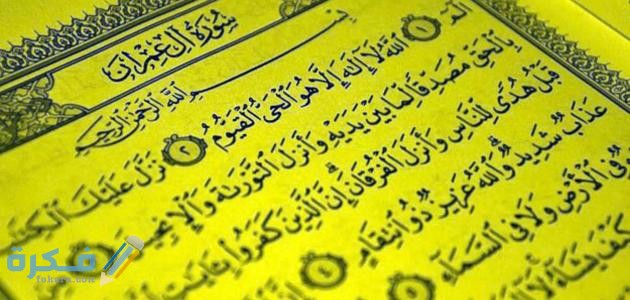 سُورَةُ آلِ عِمْرَانَ
بِسْمِ اللَّهِ الرَّحْمَٰنِ الرَّحِيمِ
الٓمٓ ١ ٱللَّهُ لَآ إِلَٰهَ إِلَّا هُوَ ٱلْحَىُّ ٱلْقَيُّومُ ٢ نَزَّلَ عَلَيْكَ ٱلْكِتَٰ
بِٱلْحَقِّ مُصَدِّقًا لِّمَا بَيْنَ يَدَيْهِ وَأَنزَلَ ٱلتَّوْرَىٰةَ وَٱلْإِنجِيلَ
قَبْلُ هُدًى لِّلنَّاسِ وَأَنزَلَ ٱلْفُرْقَانَ إِنَّ ٱلَّذِينَ كَفَرُوا۟ بِـَٔايَٰتِ
عَذَابٌ شَدِيدٌ وَٱللَّهُ عَزِيزٌ ذُو ٱنتِقَامٍ ٤
فِى ٱلْأَرْضِ وَلَا فِى ٱلسَّمَآءِ ٥
كَيْفَ يَشَآءُ لَآ إِلَٰهَ
فكرة